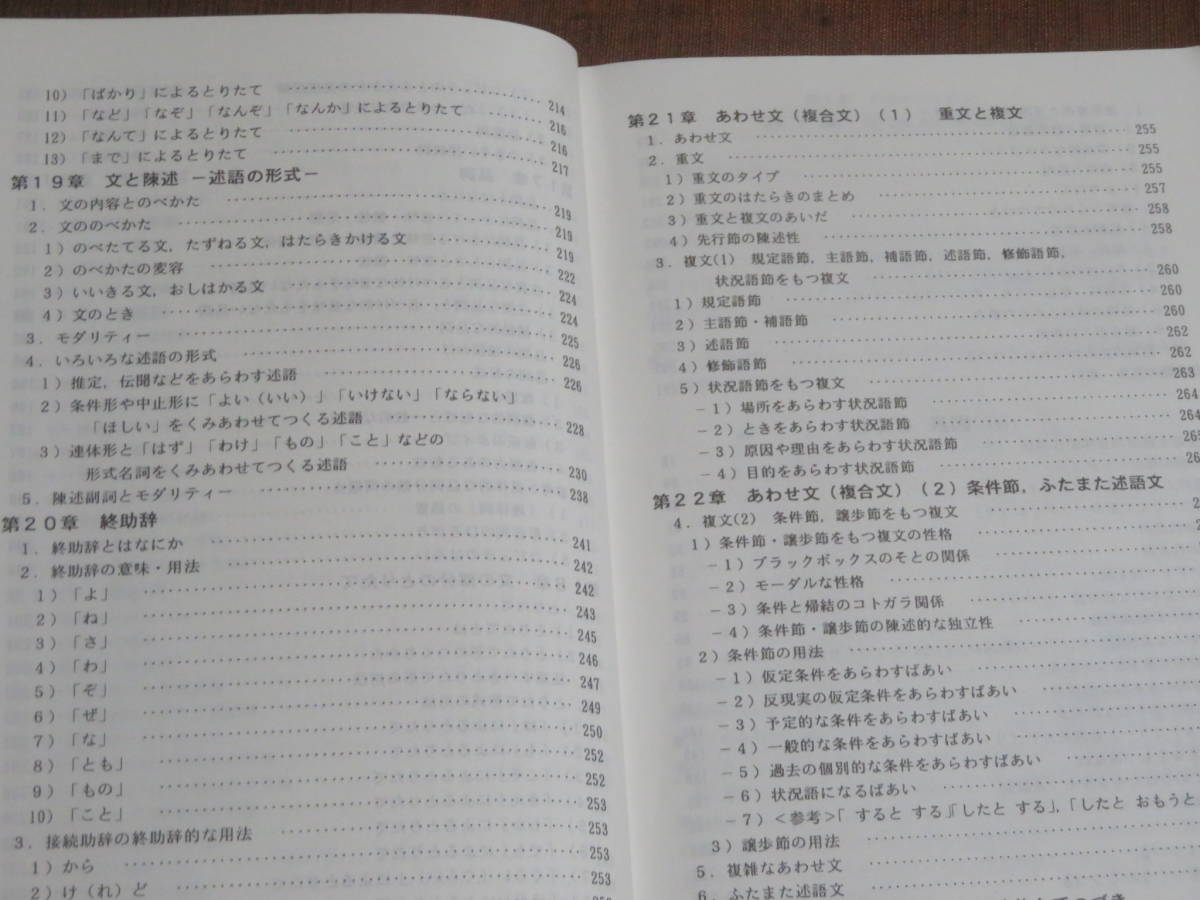 10）「ばかり」によるとりたて ……… 214
11）「など」「なぞ」「なんぞ」「なんか」によるとりたて ……… 216
12）「なんて」によるとりたて ……… 216
13）「まで」によるとりたて ……… 217
第19章　文と陳述 －述語の形式－
1．文の内容とのべかた ……… 219
2．文ののべかた ……… 219
1）のべたてる文，たずねる文，はたらきかける文 ……… 219
2）のべかたの変容 ……… 222
3）いいきる文，おしはかる文 ……… 224
4）文のとき ……… 224
3．モダリティー ……… 225
4．いろいろな述語の形式 ……… 226
1）推定，伝聞などをあらわす述語 ……… 226
2）条件形や中止形に「よい（いい）」「いけない」「ならない」
「ほしい」をくみあわせてつくる述語 ……… 228
3）連体形と「はず」「わけ」「もの」「こと」などの
形式名詞をくみあわせてつくる述語 ……… 230
5．陳述副詞とモダリティー ……… 238
第20章　終助辞
1．終助辞とはなにか ……… 241
2．終助辞の意味・用法 ……… 242
1）「よ」 ……… 242
2）「ね」 ……… 243
3）「さ」 ……… 245
4）「わ」 ……… 246
5）「ぞ」 ……… 247
6）「ぜ」 ……… 249
7）「な」 ……… 250
8）「とも」 ……… 252
9）「もの」 ……… 252
10）「こと」 ……… 253
3．接続助辞の終助辞的な用法 ……… 253
1）から ……… 253
2）け（れ）ど ……… 253
第21章　あわせ文（複合文）（1）　重文と複文
1．あわせ文 ……… 255
2．重文 ……… 255
1）重文のタイプ ……… 255
2）重文のはたらきのまとめ ……… 257
3）重文と複文のあいだ ……… 258
4）先行節の陳述性 ……… 258
3．複文(1)　規定語節，主語節，補語節，述語節，修飾語節，
状況語節をもつ複文 ……… 260
1）規定語節 ……… 260
2）主語節・補語節 ……… 260
3）述語節 ……… 262
4）修飾語節 ……… 262
5）状況語節をもつ複文 ……… 263
－1）場所をあらわす状況語節 ……… 264
－2）ときをあらわす状況語節 ……… 264
－3）原因や理由をあらわす状況語節
－4）目的をあらわす状況語節
第22章　あわせ文（複合文）（2）条件節，ふたまた述語文
4．複文(2)　条件節，譲歩節をもつ複文
1）条件節・譲歩節をもつ複文の性格
－1）ブラックボックスのそとの関係
－2）モーダルな性格
－3）条件と帰結のコトガラ関係
－4）条件節・譲歩節の陳述的な独立性
2）条件節の用法
－1）仮定条件をあらわすばあい
－2）反現実の仮定条件をあらわすばあい
－3）予定的な条件をあらわすばあい
－4）一般的な条件をあらわすばあい
－5）過去の個別的な条件をあらわすばあい
－6）状況語になるばあい
－7）＜参考＞「すると する」「したと する」，「したと おもうと
3）譲歩節の用法
5．複雑なあわせ文
6．ふたまた述語文